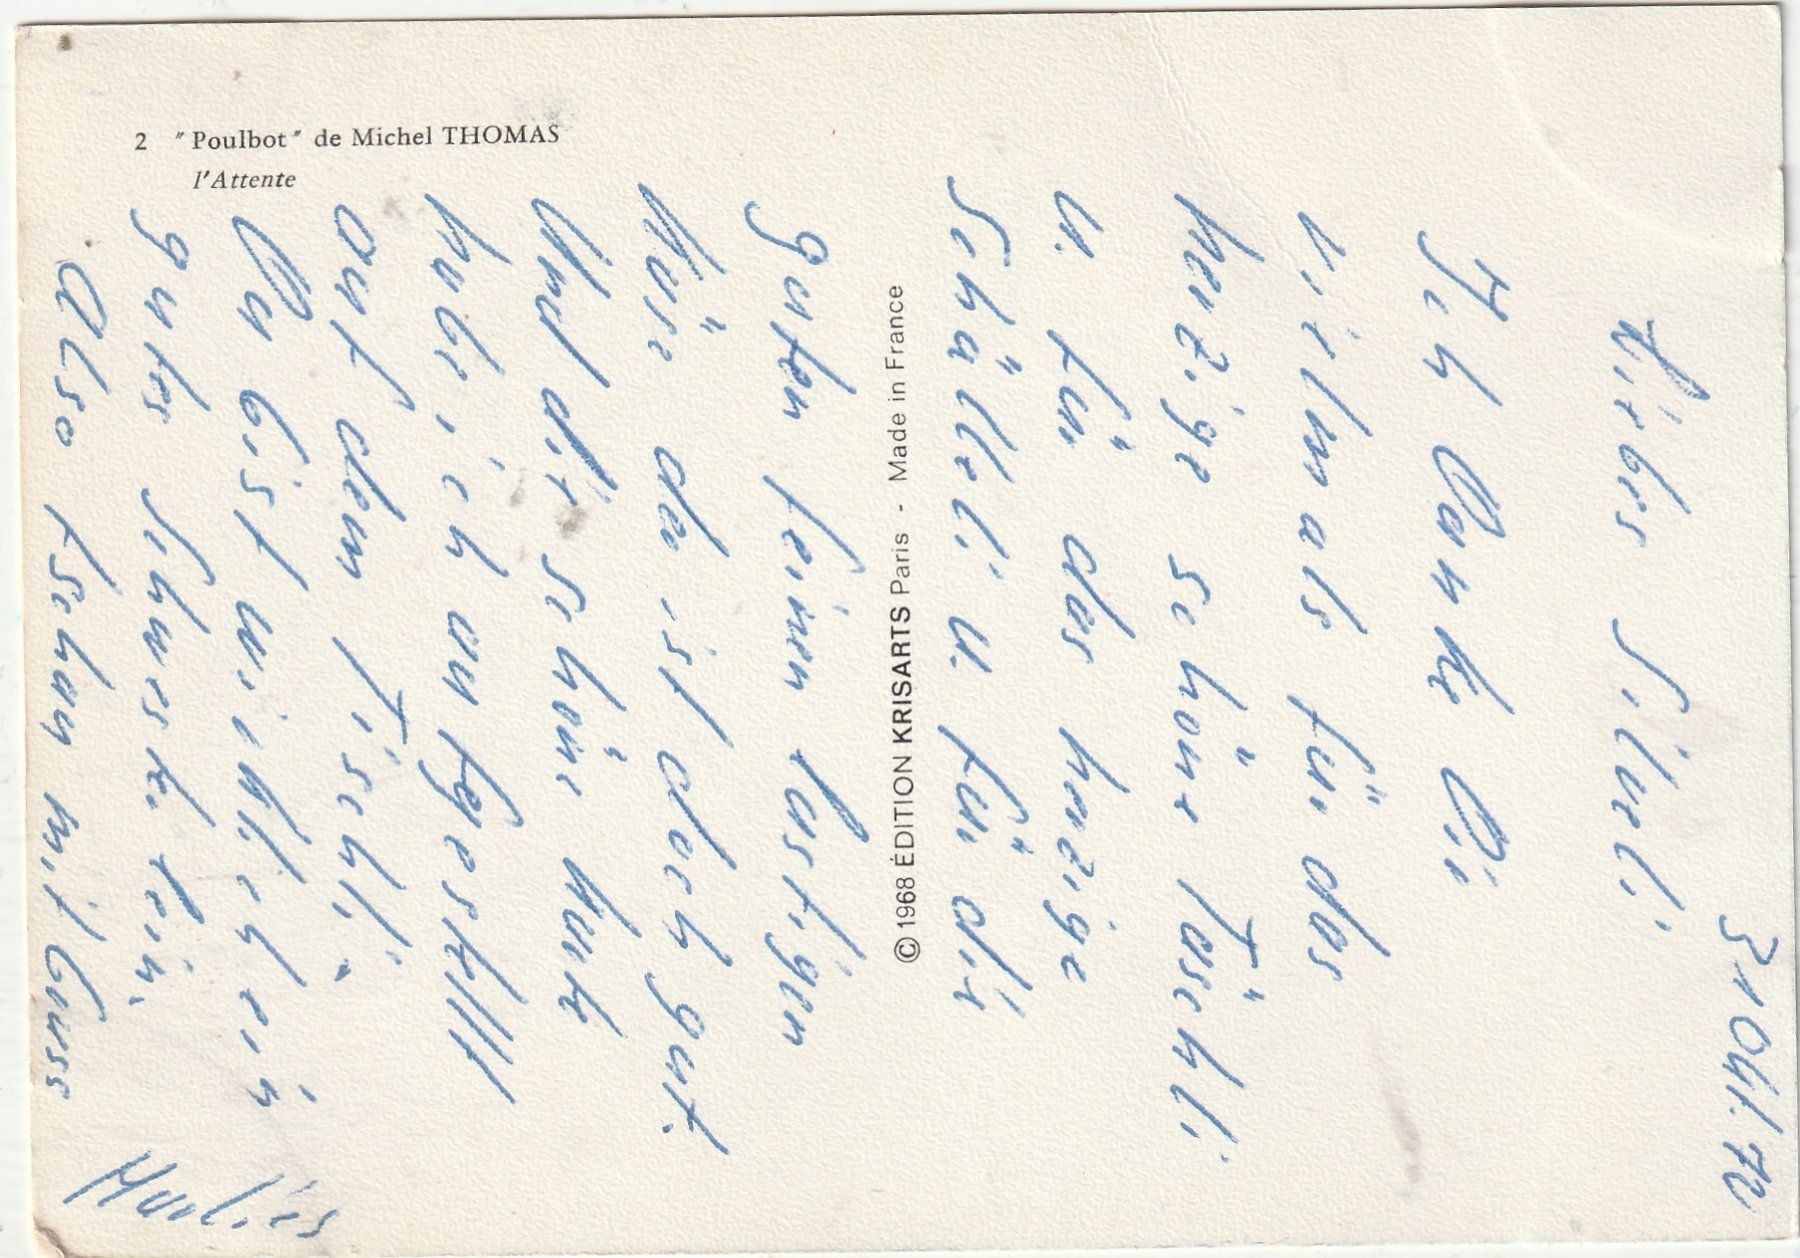 2 "Poulbot" de Michel THOMAS
l'Attente
© 1968 ÉDITION KRISARTS Paris - Made in France
31 Okt. 70
Liebes Silveli
Ich Danke Di
vielmals für das
herzige schöne Täschli
u. für das herzige
Schälleli u. für die
guten feinen lustigen
da ist doch gut.
Und die schöne Karte
habe ich aufgestellt
auf dem Tischli.
Du bist wirklich ein
gutes Schwesterlein.
Also tschau mit Gruss